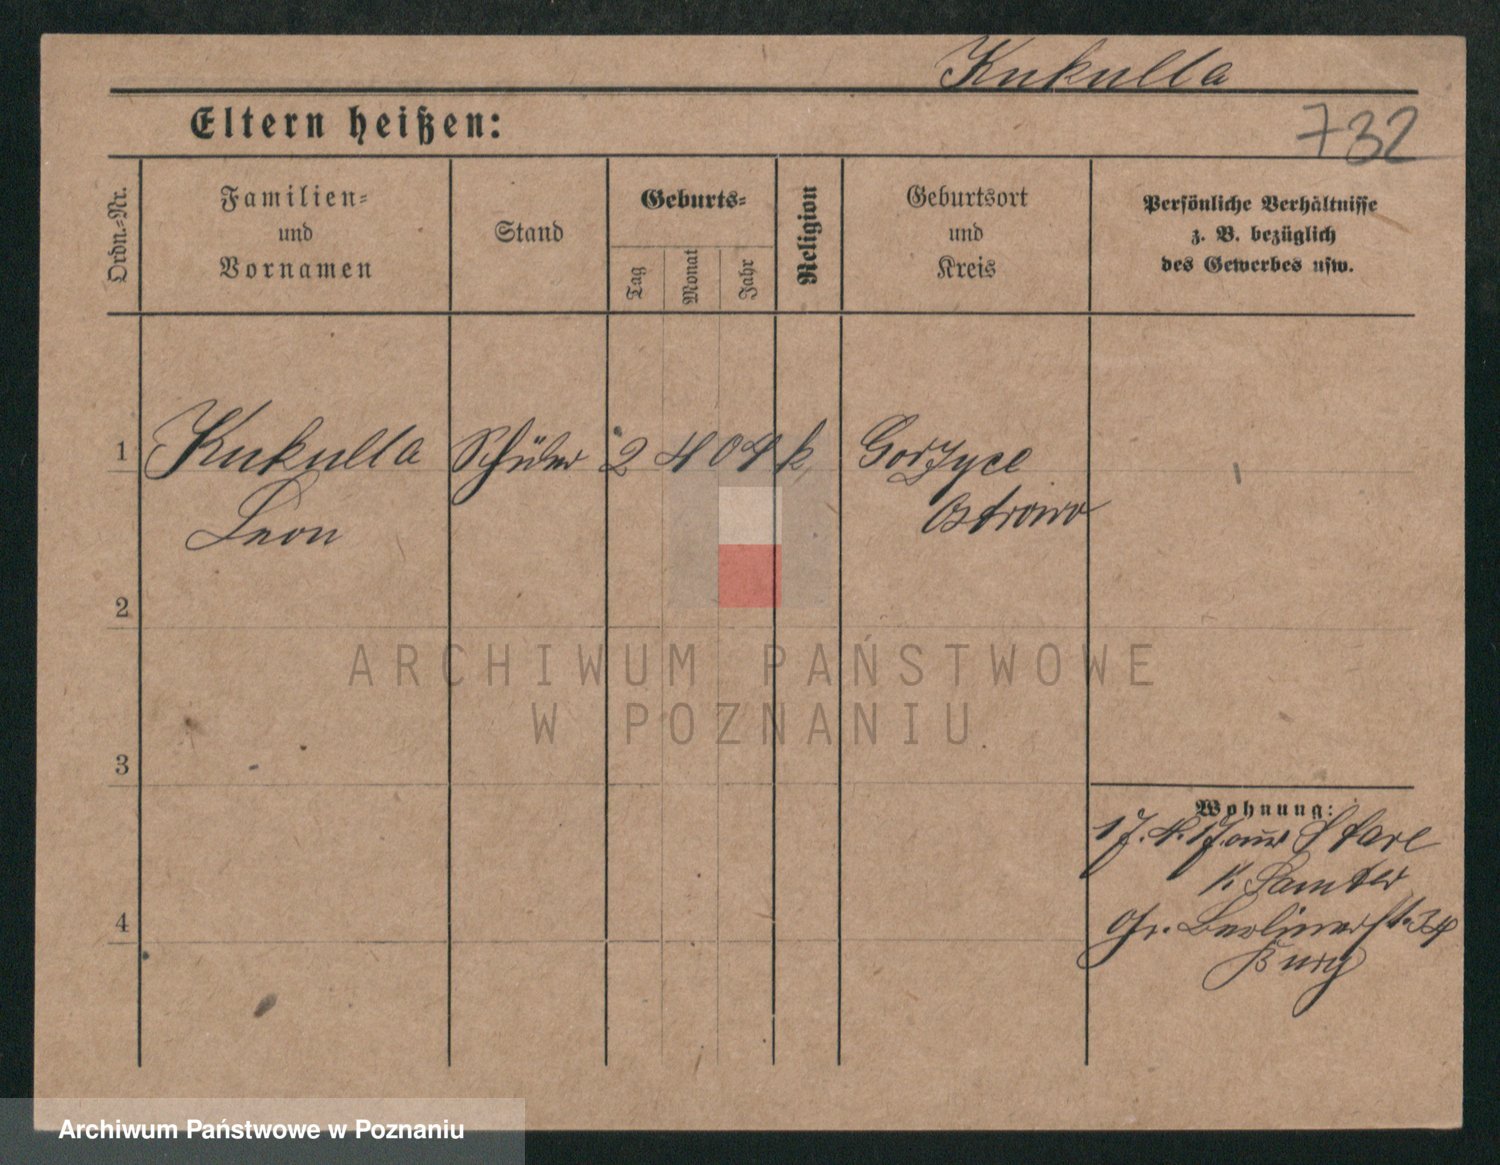 Kukulla
732
Eltern heißen:
Ordn.-Nr.
Familien-
und
Vornamen
Stand
Geburts-
Tag
Monat
Jahr
Religion
Geburtsort
und
Kreis
Persönliche Verhältnisse
z. B. bezüglich
des Gewerbes usw.
1 Kukulla Schüler 2 4 04 k. Gorzyce
Leon Ostrowo
2
ARCHIWUM PAŃSTWOWE
W POZNANIU
3
Wohnung:
17. 4. 17
K Samter
Gr. Berlinerst. 34
Burg
4
Archiwum Państwowe w Poznaniu